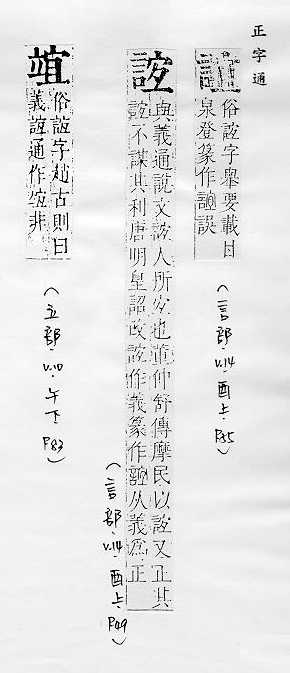 正字通
俗誼字舉要載甘
泉登篆作誼誤
（言部.V.14.酉上.P.35）
誼
與義通說文誼人所宜也董仲舒傳摩民以誼又正其
誼不謀其利唐明皇詔改誼作義篆作誼从義爲正
（言部.V.14.酉上.P.49）
竩
俗誼字古則曰
義誼通作竩非
（立部.V.10.午下.P.83）